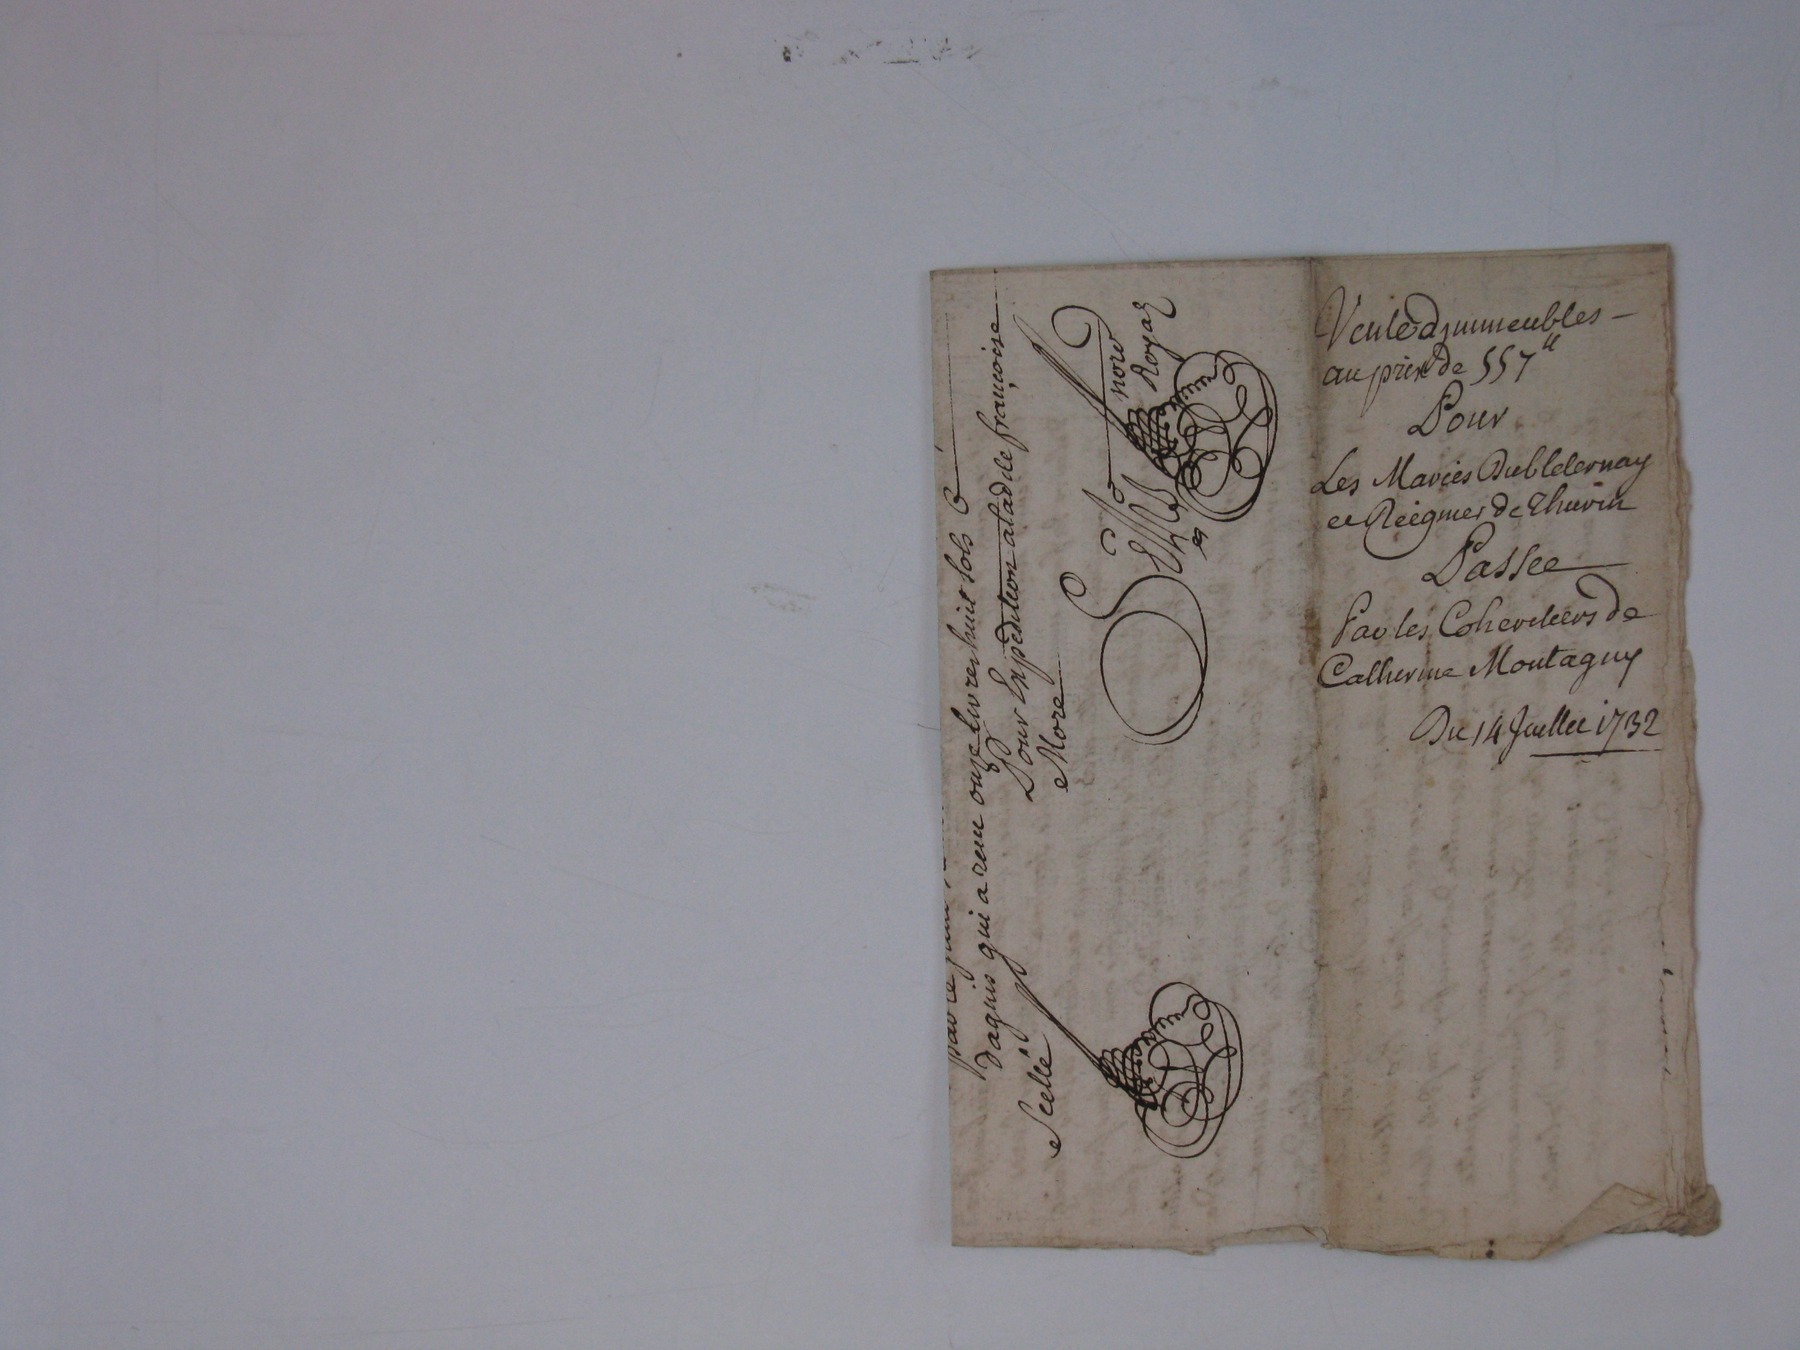 Vente dimmeubles —
au prix de 557 ᵗᵗ
Pour
Les Maries
et Reigmer de Thurin
Passee
Par les Coheritiers de
Catherine Montagny
Du 14 Juillet 1732
Dagnis qui a receu onze livres huit sols
Pour Expedition a ladite françoise
More
Scellé
noro
Royal